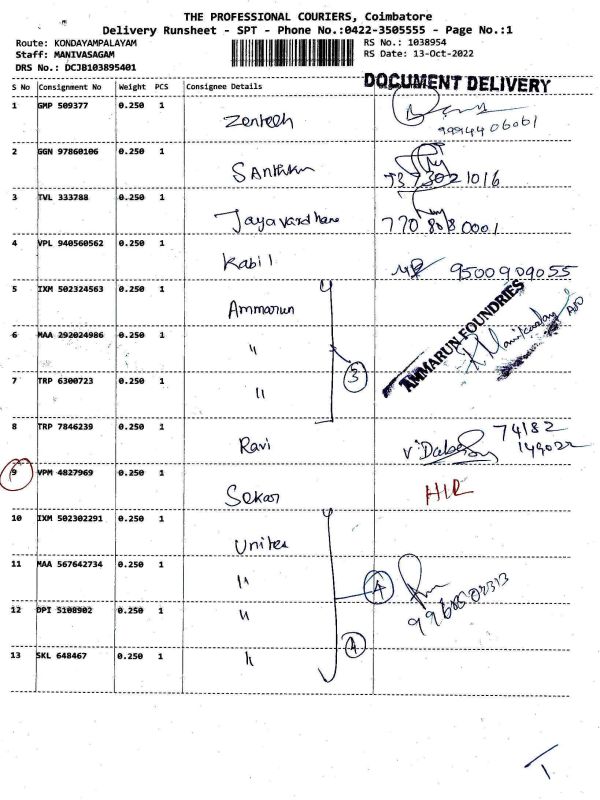 THE PROFESSIONAL COURIERS, Coimbatore
Delivery Runsheet - SPT - Phone No.:0422-3505555 - Page No.:1
Route: KONDAYAMPALAYAM
Staff: MANIVASAGAM
DRS No.: DCJB103895401
RS No.: 1038954
RS Date: 13-Oct-2022
DOCUMENT DELIVERY
S No Consignment No Weight PCS Consignee Details
1 GMP 509377 0.250 1 Zentech
2 GGN 97860106 0.250 1
3 TVL 333788 0.250 1 Jayavardhane 770 808 0001
4 VPL 940560562 0.250 1 Kabil 9500909055
5 IXM 502324563 0.250 1 Ammarun
6 MAA 292024986 0.250 1 "
7 TRP 6300723 0.250 1 "
3
AMMARUN FOUNDRIES
8 TRP 7846239 0.250 1 Ravi 74182
149022
9 VPM 4827969 0.250 1 Sekar
10 IXM 502302291 0.250 1 Unitea
11 MAA 567642734 0.250 1 "
12 DPI 5108902 0.250 1 "
13 SKL 648467 0.250 1 "
4
4